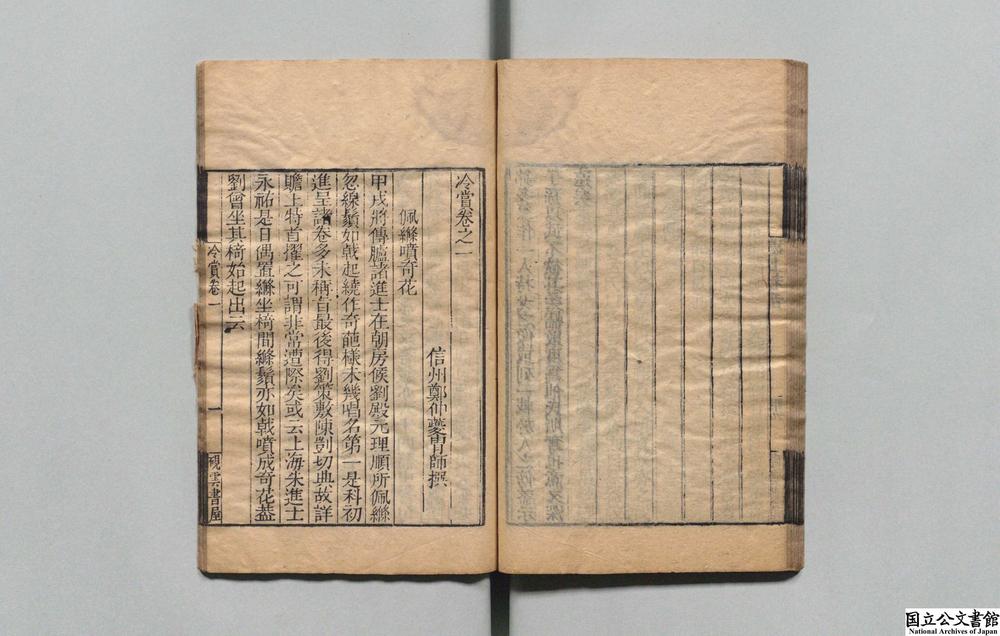 冷賞卷之一
信州鄭仲夔胄師撰
佩縧噴奇花
甲戌將傳臚諸進士在朝房候劉殿元理順所佩縧
忽線鬚如戟起繞作奇葩樣未幾唱名第一是科初
進呈諸卷多未稱旨最後得劉策敷陳剴切典故詳
贍上特首擢之可謂非常遭際矣或云上海朱進士
永祐是日偶置縧坐椅間縧鬚亦如戟噴成奇花蓋
劉曾坐其椅始起出云
冷賞卷一
一
硯雲書屋
国立公文書館
National Archives of Japan